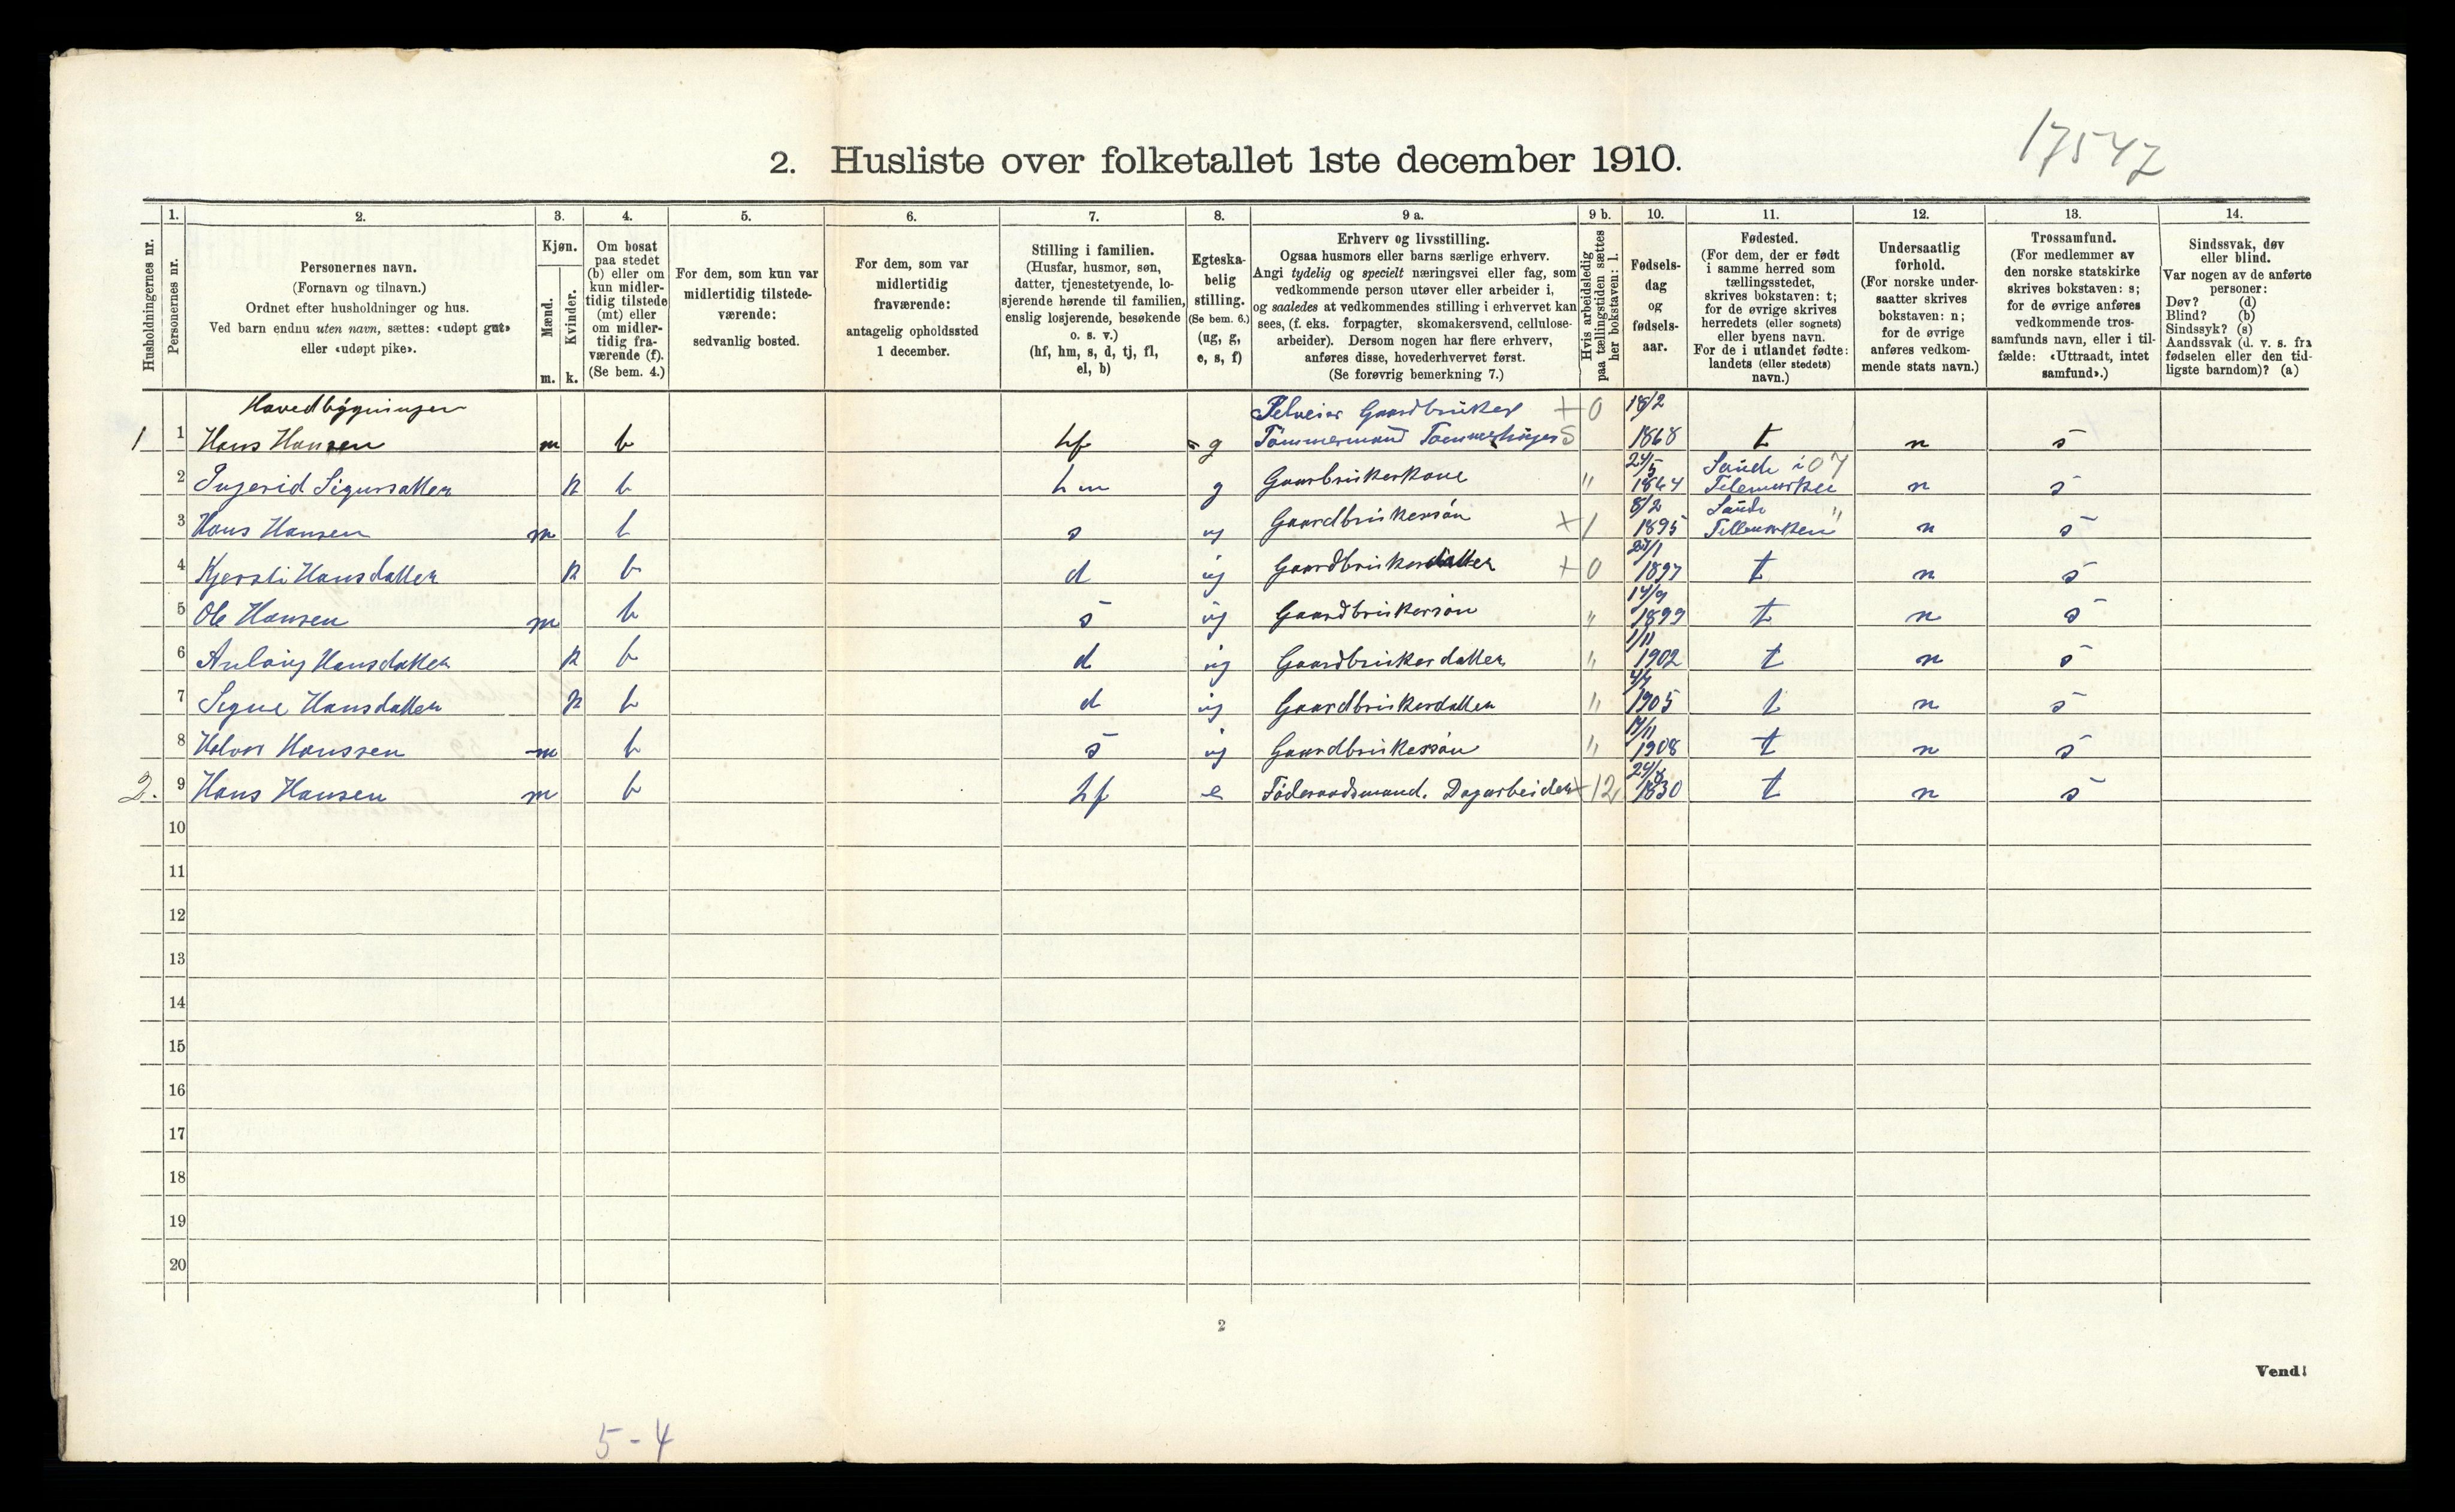 17547
2. Husliste over folketallet 1ste december 1910.
Husholdningernes nr.
1.
Personernes nr.
2.
Personernes navn.
(Fornavn og tilnavn.)
Ordnet efter husholdninger og hus.
Ved barn endnu uten navn, sættes: «udøpt gut»
eller «udøpt pike».
3.
Kjøn.
Mænd.
Kvinder.
m. k.
4.
Om bosat
paa stedet
(b) eller om
kun midler-
tidig tilstede
(mt) eller
om midler-
tidig fra-
værende (f).
(Se bem. 4.)
5.
For dem, som kun var
midlertidig tilstede-
værende:
sedvanlig bosted.
6.
For dem, som var
midlertidig
fraværende:
antagelig opholdssted
1 december.
7.
Stilling i familien.
(Husfar, husmor, søn,
datter, tjenestetyende, lo-
sjerende hørende til familien,
enslig losjerende, besøkende
o. s. v.)
(hf, hm, s, d, tj, fl,
el, b)
8.
Egteska-
belig
stilling.
(Se bem. 6.)
(ug, g,
e, s, f)
9 a.
Erhverv og livsstilling.
Ogsaa husmors eller barns særlige erhverv.
Angi tydelig og specielt næringsvei eller fag, som
vedkommende person utøver eller arbeider i,
og saaledes at vedkommendes stilling i erhvervet kan
sees, (f. eks. forpagter, skomakersvend, cellulose-
arbeider). Dersom nogen har flere erhverv,
anføres disse, hovederhvervet først.
(Se forøvrig bemerkning 7.)
9 b.
Hvis arbeidsledig
paa tællingstiden sættes
her bokstaven: l.
10.
Fødsels-
dag
og
fødsels-
aar.
11.
Fødested.
(For dem, der er født
i samme herred som
tællingsstedet,
skrives bokstaven: t;
for de øvrige skrives
herredets (eller sognets)
eller byens navn.
For de i utlandet fødte:
landets (eller stedets)
navn.)
12.
Undersaatlig
forhold.
(For norske under-
saatter skrives
bokstaven: n;
for de øvrige
anføres vedkom-
mende stats navn.)
13.
Trossamfund.
(For medlemmer av
den norske statskirke
skrives bokstaven: s;
for de øvrige anføres
vedkommende tros-
samfunds navn, eller i til-
fælde: «Uttraadt, intet
samfund».)
14.
Sindssvak, døv
eller blind.
Var nogen av de anførte
personer:
Døv? (d)
Blind? (b)
Sindssyk? (s)
Aandssvak (d. v. s. fra
fødselen eller den tid-
ligste barndom)? (a)
Hovedbygningen Selveier Gaardbruker + 0 18/2
1 1 Hans Hansen m b hf g Tømmermand 5 1868 t n s
24/5 Saude i 07
2 Ingerid k b hm g Gaarbrukerkone " 1864 Telemarken n s
8/2 Saude "
3 Hans Hansen m b s ug Gaardbrukersøn + 1 1895 Tellemarken n s
4 Kjersti Hansdatter k b d ug Gaardbrukerdatter + 0 1897 t n s
14/9
5 Ole Hansen m b s ug Gaardbrukersøn " 1899 t n s
1/11
6 Anlaug Hansdatter k b d ug Gaardbrukerdatter " 1902 t n s
7 Signe Hansdatter k b d ug Gaardbrukerdatter " 1905 t n s
8 Halvor Hanssen m b s ug Gaardbrukersøn " 1908 t n s
24/8
2. 9 Hans Hansen m b hf eFøderaadsmand. Dagarbeider + 12 1830 t n s
10
11
12
13
14
15
16
17
18
19
20
2
Vend!
5-4